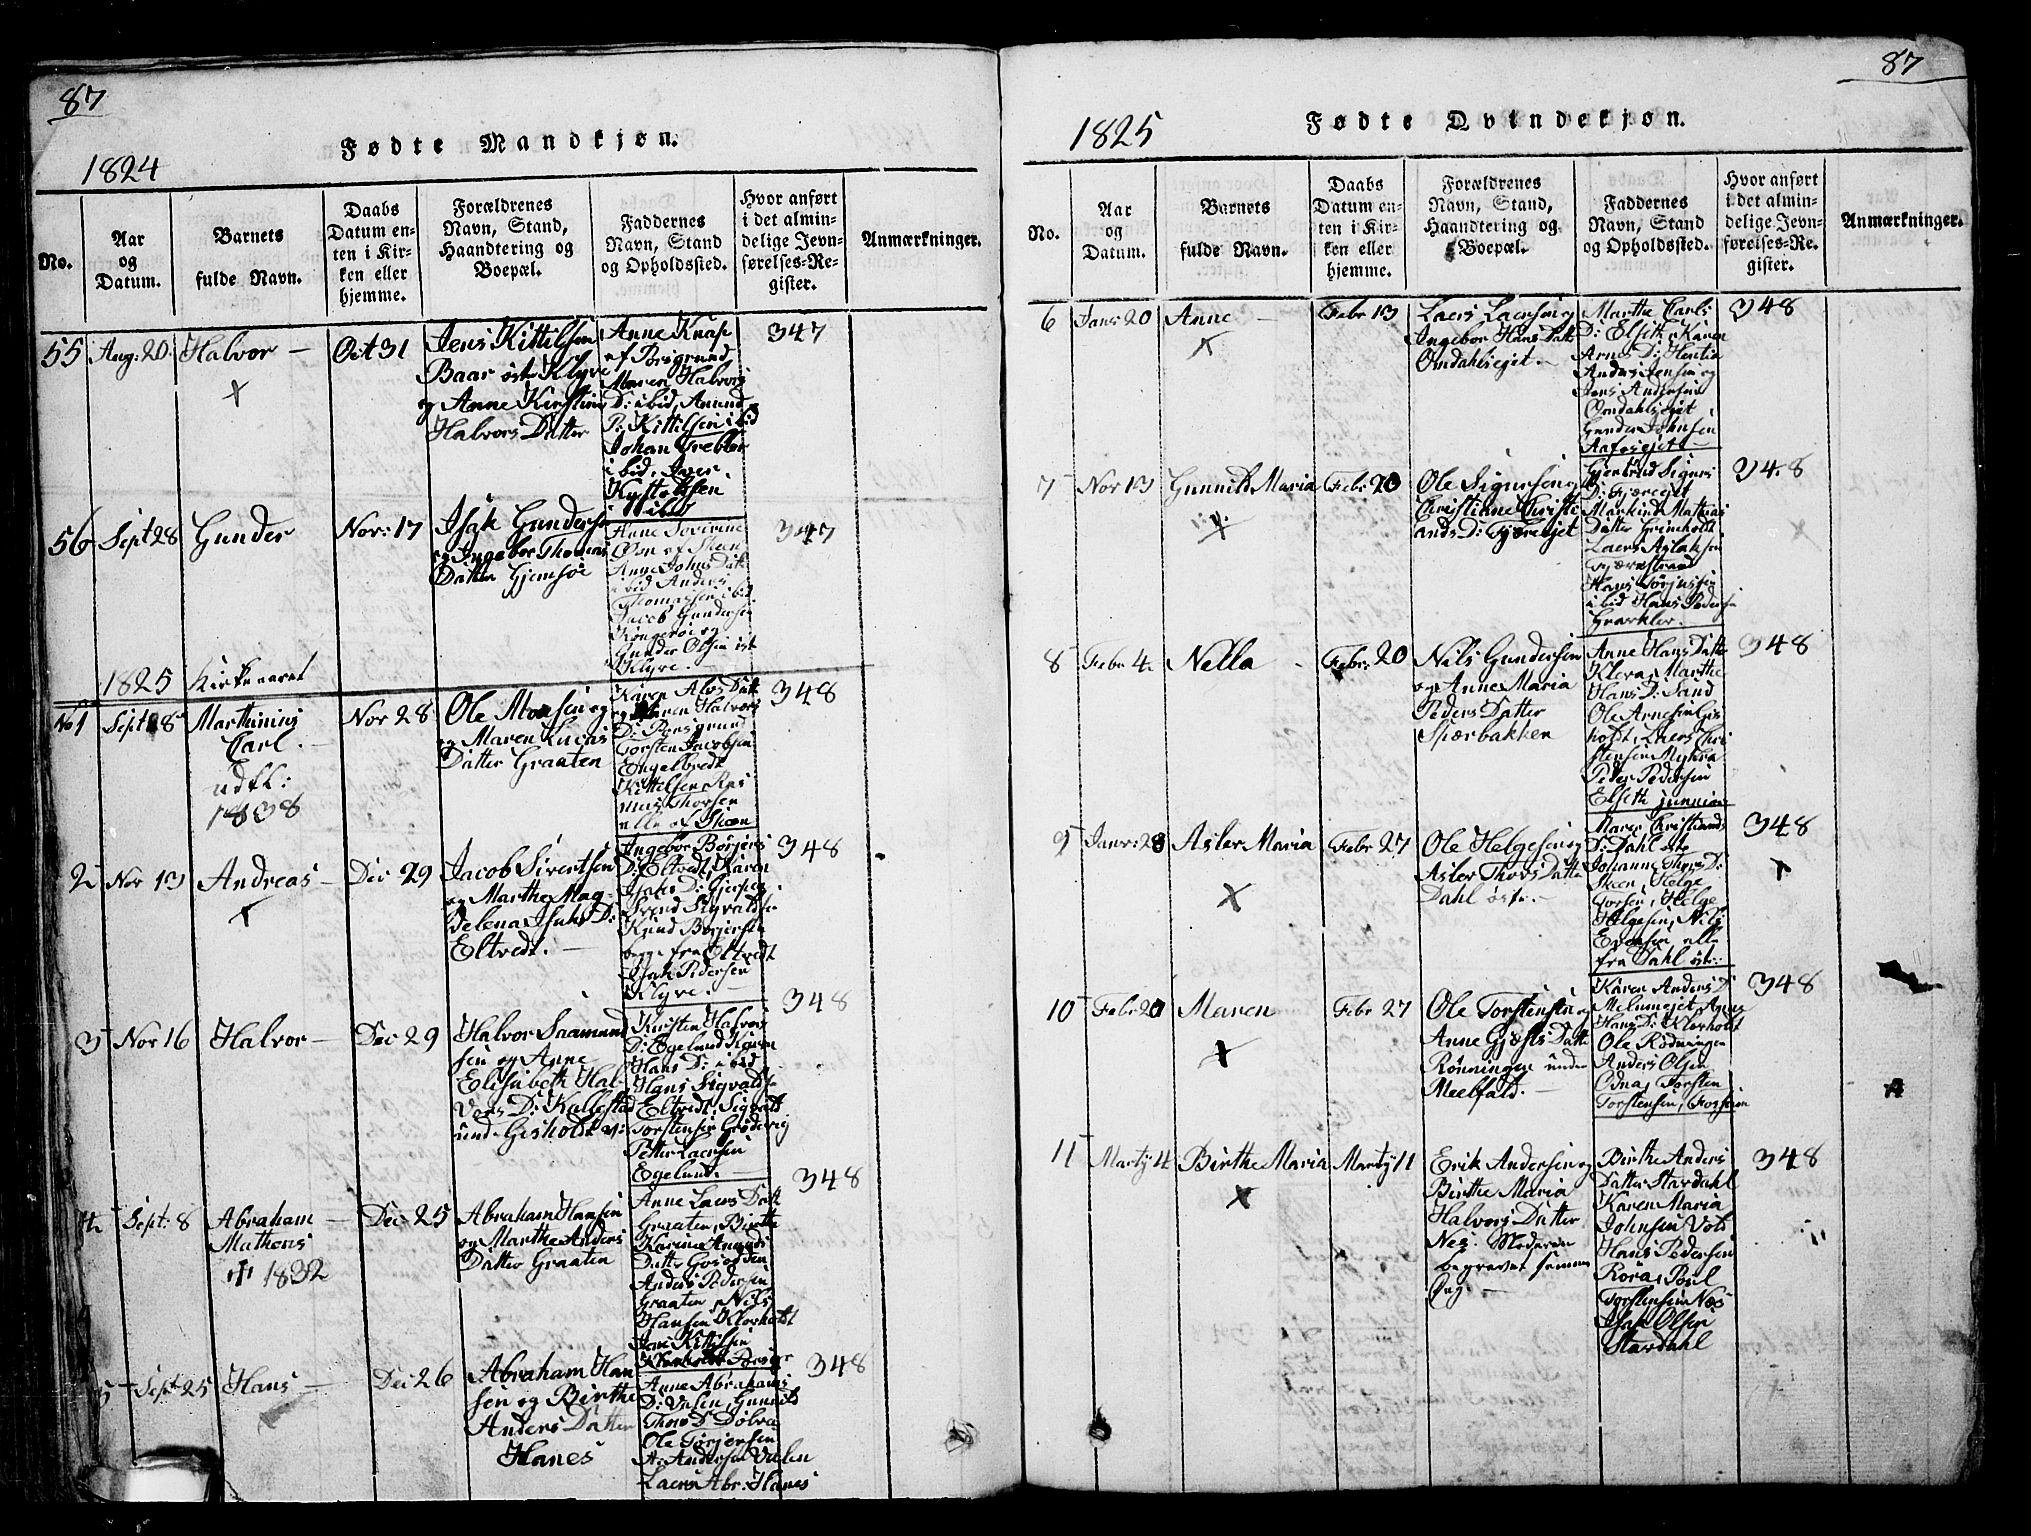 87
1824
Fødte Mandkjøn.
No.
Aar
og
Datum.
Barnets
fulde Navn.
Daabs
Datum en-
ten i Kir-
ken eller
hjemme.
Forældrenes
Navn, Stand,
Haandtering og
Boepæl.
Faddernes
Navn, Stand
og Opholdssted.
Hvor anført
i det almin-
delige Jevn-
førelses-Re-
gister.
Anmærkninger.
55 Aug: 20. Halvor — Oct 31
Jens Kittilsen
Baar øst Klyve
og Anne Kirstine
Halvors Datter
Anne Knap
af Porsgrund
Maren Halvors
D: ibid, Amund
P. Kittilsen ibid
Johan Grebber
ibid, Iver
ibid
347
56 Sept 28 Gunder Nov: 17
Isak Gundersen
og Ingebor Thomas
Datter Gjemsøe
Anne Severine
Olsen af Skeen
Anne Johns Dat
ibid Anders
Thomassen ibid
Jacob Gundersen
og
Gunder Olsen øst
Klyve.
347
1825 Kirkeaaret
No 1 Sept 18 Marthinius
Carl. —
udfl:
1838
Nor 28
Ole Monsen og
og Maren Lucas
Datter Graaten
Karen Alvs Datt
og Maren Halvors
D: Porsgrund
Torsten Jacobsen
Engelbret
Kittelsen Ras
mus Thorsen
alle af Skeen
348
2 Nor 13 Andreas — Dec 29
Jacob Sivertsen
og Marthe Mag
delena Isaks D:
Eltvedt. —
Ingebor Børjers
D: Eltvedt, Karen
Isaks D: Gjerpen
Svend Sigvaldsen
Knud Børjersen
begge fra Eltvedt
Isak Pedersen
Klyve. —
348
3 Nor 16 Halvor — Dec 29
Halvor Saamund
sen og Anne
Elisabeth Hal
vors D: Kallestad
und: Gisholdt v:
Kirsten Halvors
D: Egelund Karen
Hans D: ibid
Hans Sigvaldsen
Eltvedt, Sigvald
Torstensen Grøderig
Petter Laersen
Egelund. —
348
4 Sept: 8 Abraham —
Mathens
1832
Dec 25
Abraham Hansen
og Marthe Anders
Datter Graaten
Anne Laers Datt
Graaten, Birthe
Karine Amunds
Datter
Anders Pedersen
Graaten, Nils
Hansen Klovholt
Jens Kittilsen
348
5 Sept 25 Hans — Dec 26
Abraham Han
sen og Birthe
Anders Datter
Hanes
Anne Abrahams
D: Valen, Gunnild
Thors D: Dølva
Ole Torjersen
A: Andersen Valen
Laers Abr: Hanes
348
87
1825
Fødte Qvindekjøn.
No.
Aar
og
Datum.
Barnets
fulde Navn.
Daabs
Datum en-
ten i Kir-
ken eller
hjemme.
Forældrenes
Navn, Stand,
Haandtering og
Boepæl.
Faddernes
Navn, Stand
og Opholdssted.
Hvor anført
i det almin-
delige Jevn-
førelses-Re-
gister.
Anmærkninger.
6 Janr 20 Anne — Febr 13
Laers Laersen og
Ingebor Hans Datt
Omdahlsejet. —
Marthe Carls
D: Elseth, Karen
Arnes D: Hentia
Anders Jensen og
Jens Andersen
Omdahlsejet
Gunder Johnsen
348
7 Nor 13 Gunnild Maria Febr 20
Ole Sigursen og
Christiane Christi
ands D: Fjæreejet
Sigurs
D: Fjæreejet
Mathias
Datter Grimholdt
Laers Aslaksen
Fjærestrand
Hans Torjusen
ibid Hans Pedersen
Gravkler.
348
8 Febr 4. Nella Febr: 20
Nils Gundersen
og Anne Maria
Peders Datter
Skjærbakken
Anne Hans Datter
Klevas, Marthe
Hans D: Sand
Ole Arnesen Gis
holdt, Laers Chri
stensen Myhra
Peder Pedersen
Elseth junior
348
9 Janr: 28 Asler Maria Febr 27
Ole Helgesen og
Asler Thors Datter
Dahl øste. —
Maren Christiands
D: Dahl øste
Johanne Thors D:
Skeen, Helge
Torsen, Helge
Helgesen, Nils
Evensen, alle
fra Dahl øst:
348
10 Febr 20 Maren Febr 27
Ole Torstensen og
Anne Gjests Datt
Rønningen under
Meelfald. —
Karen Anders D
Melumejet, Anne
Hans D: Klovholt
Ole Rødningen
Anders Olsen
Odnas, Torsten
Torstensen, Fossum
348
11 Martÿ 4 Birthe Maria Martÿ 11
Erik Andersen og
Birthe Maria
Halvors Datter
Nes. Moderen
begravet samme
Dag. —
Birthe Anders
Datter Stardahl
Karen Maria
Johnsen Vold
Hans Pedersen
Røra, Poul
Torstensen Næs
Isak Olsen
Stardahl
348